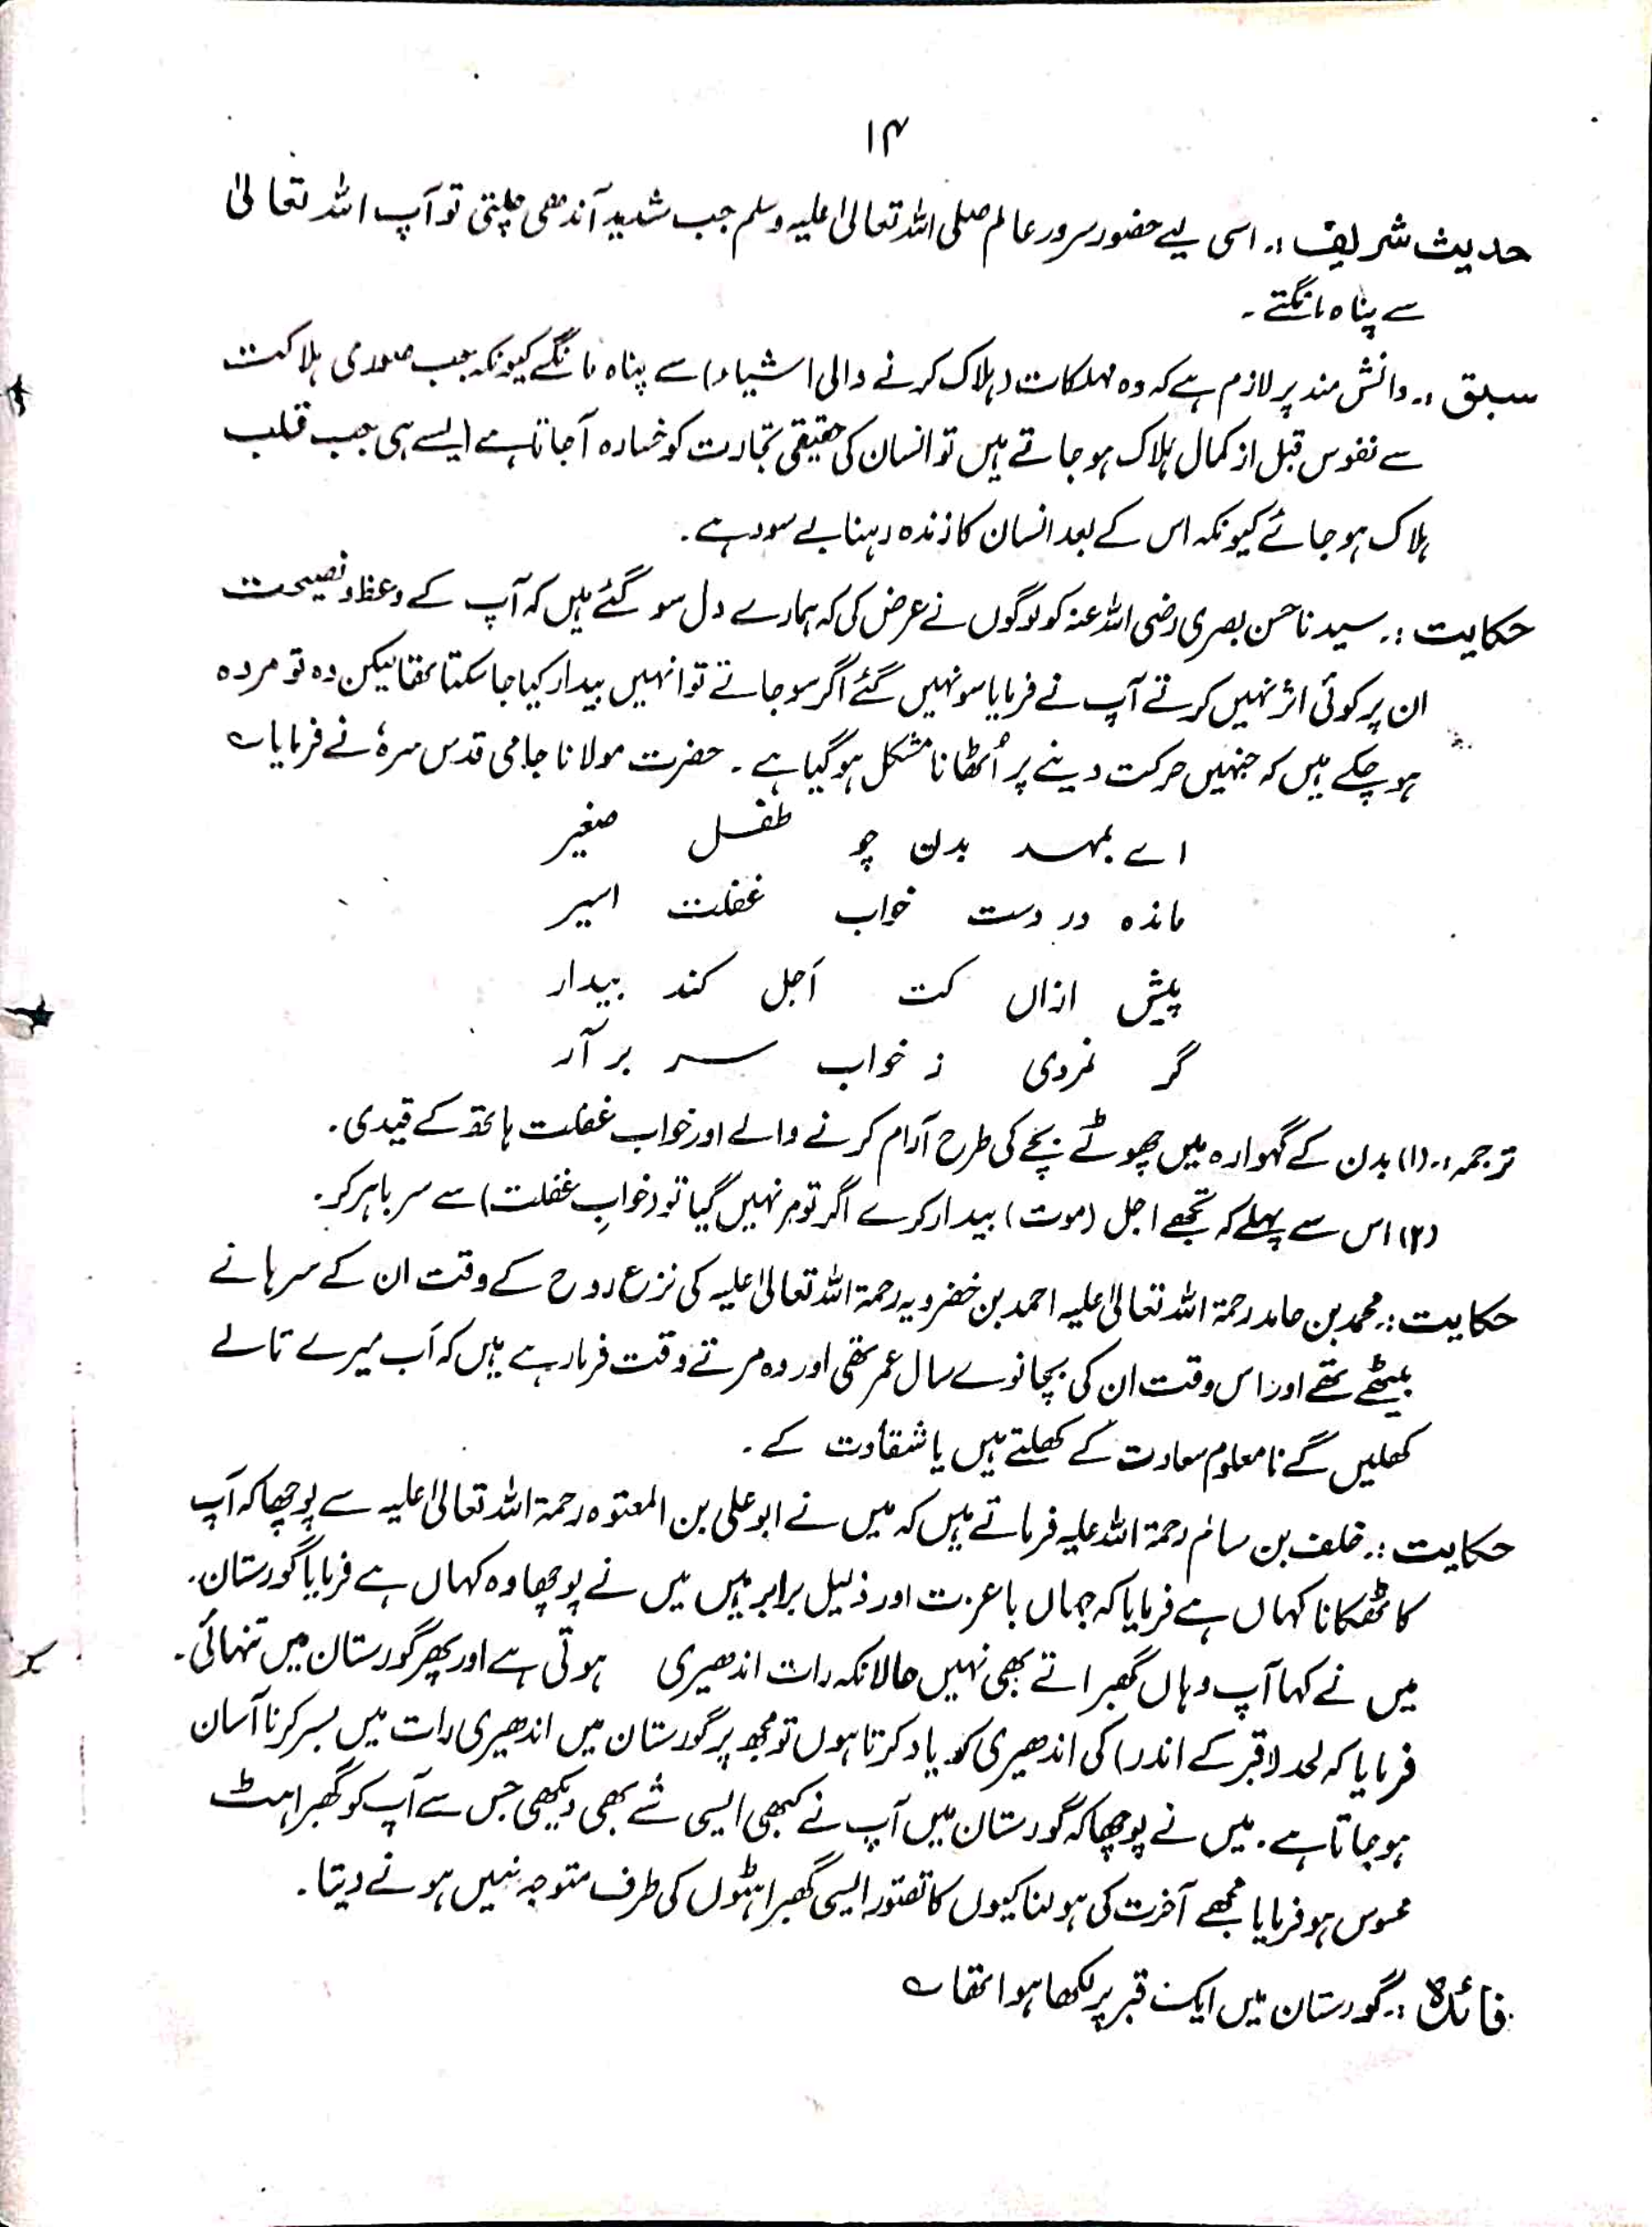 ۱۴
حدیث شریف :۔ اسی لیے حضور سرور عالم صلی اللہ تعالیٰ علیہ وسلم جب شدید آندھی چلتی تو آپ اللہ تعالیٰ
سے پناہ مانگتے ۔
سبق :۔ دانش مند پر لازم ہے کہ وہ مہلکات (ہلاک کرنے والی اشیاء) سے پناہ مانگے کیونکہ جب صوری ہلاکت
سے نفوس قبل از کمال ہلاک ہو جاتے ہیں تو انسان کی حقیقی تجارت کو خسارہ آ جاتا ہے ایسے ہی جب قلب
ہلاک ہو جائے کیونکہ اس کے بعد انسان کا زندہ رہنا بے سود ہے ۔
حکایت :۔ سیدنا حسن بصری رضی اللہ عنہ کو لوگوں نے عرض کی کہ ہمارے دل سو گئے ہیں کہ آپ کے وعظ و نصیحت
ان پر کوئی اثر نہیں کرتے آپ نے فرمایا سو نہیں گئے اگر سو جاتے تو انہیں بیدار کیا جا سکتا تھا لیکن وہ تو مردہ
ہو چکے ہیں کہ جنہیں حرکت دینے پر اُٹھانا مشکل ہو گیا ہے ۔ حضرت مولانا جامی قدس سرہٗ نے فرمایا ؎
اے بمہد بدن چو طفل صغیر
ماندہ در دست خواب غفلت اسیر
پیش ازاں کت اَجل کند بیدار
گر نمردی ز خواب سر بر آر
ترجمہ :۔ (۱) بدن کے گہوارہ میں چھوٹے بچے کی طرح آرام کرنے والے اور خواب غفلت ہاتھ کے قیدی ۔
(۲) اس سے پہلے کہ تجھے اجل (موت) بیدار کرے اگر تو مر نہیں گیا تو (خوابِ غفلت) سے سر باہر کر ۔
حکایت :۔ محمد بن حامد رحمۃ اللہ تعالیٰ علیہ احمد بن خضرویہ رحمۃ اللہ تعالیٰ علیہ کی نزع روح کے وقت ان کے سرہانے
بیٹھے تھے اور اس وقت ان کی پچانوے سال عمر تھی اور وہ مرتے وقت فرما رہے ہیں کہ اَب میرے تالے
کھلیں گے نا معلوم سعادت کے کھلتے ہیں یا شقاوت کے ۔
حکایت :۔ خلف بن سالم رحمۃ اللہ علیہ فرماتے ہیں کہ میں نے ابو علی بن المعتوہ رحمۃ اللہ تعالیٰ علیہ سے پوچھا کہ آپ
کا ٹھکانا کہاں ہے فرمایا کہ جہاں با عزت اور ذلیل برابر ہیں میں نے پوچھا وہ کہاں ہے فرمایا گورستان ۔
میں نے کہا آپ وہاں گھبراتے بھی نہیں حالانکہ رات اندھیری ہوتی ہے اور پھر گورستان میں تنہائی ۔
فرمایا کہ لحد (قبر کے اندر) کی اندھیری کو یاد کرتا ہوں تو مجھ پر گورستان میں اندھیری رات میں بسر کرنا آسان
ہو جاتا ہے ۔ میں نے پوچھا کہ گورستان میں آپ نے کبھی ایسی شے بھی دیکھی جس سے آپ کو گھبراہٹ
محسوس ہو فرمایا مجھے آخرت کی ہولناکیوں کا تصور ایسی گھبراہٹوں کی طرف متوجہ نہیں ہونے دیتا ۔
فائدہ :۔ گورستان میں ایک قبر پر لکھا ہوا تھا ؎